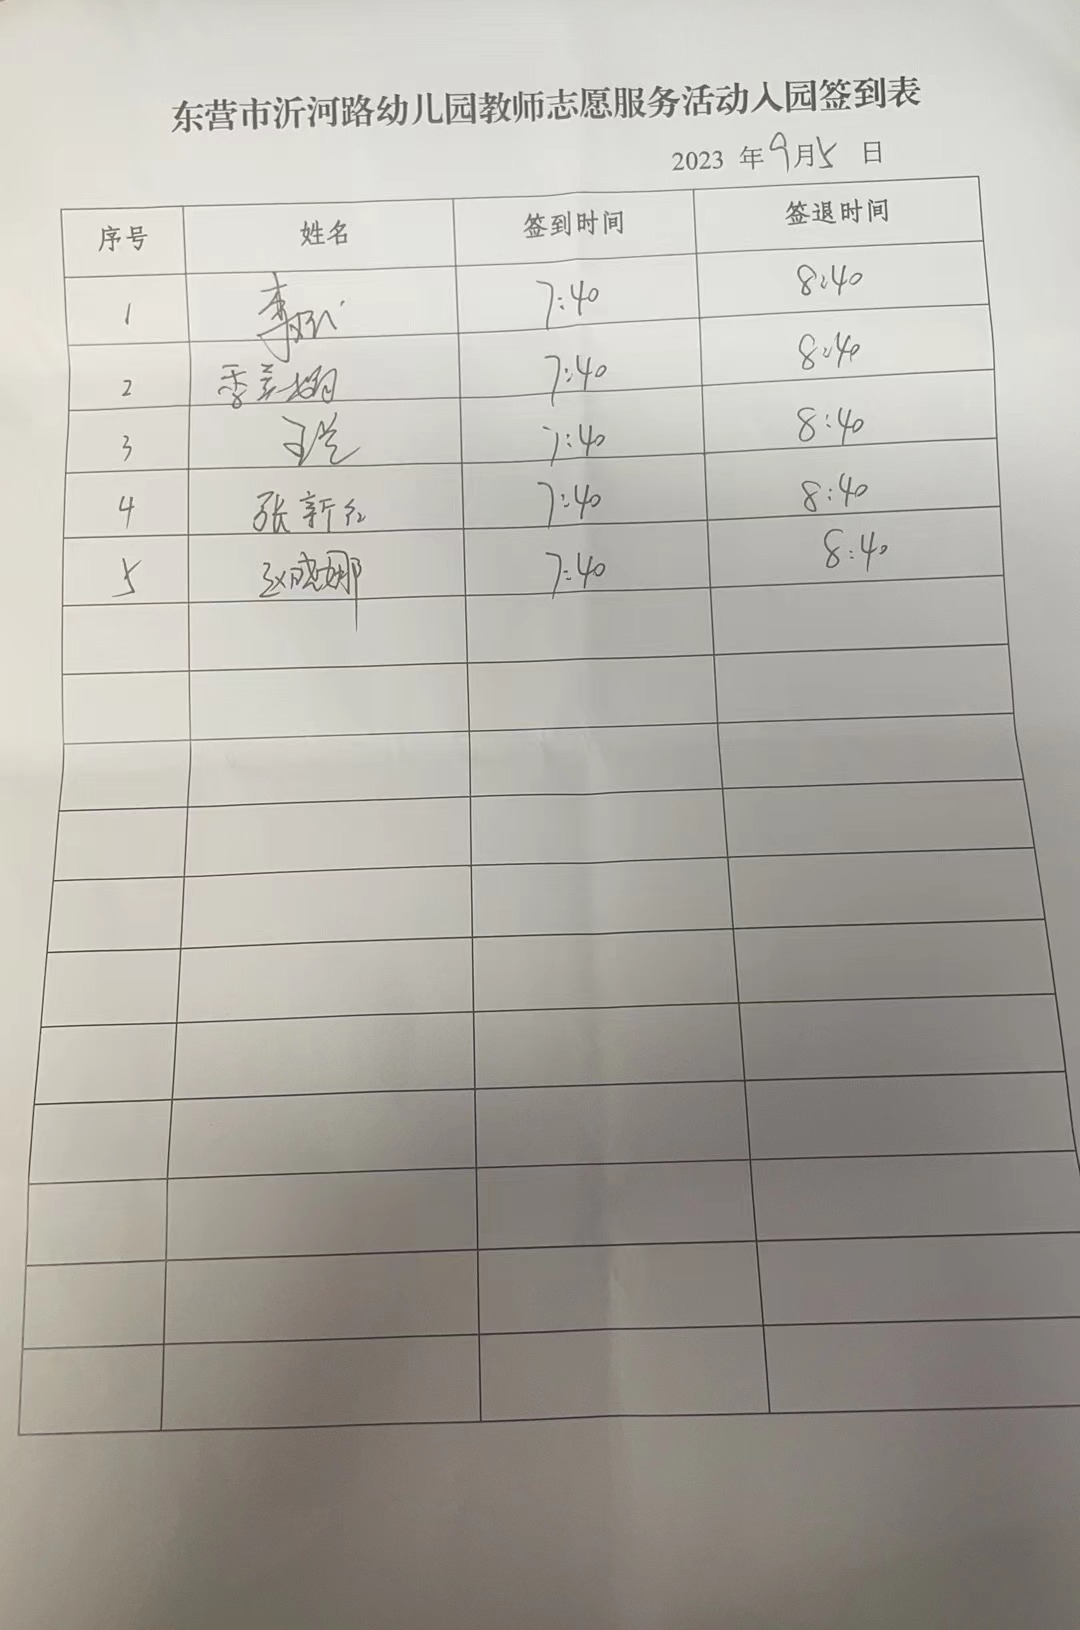 东营市沂河路幼儿园教师志愿服务活动入园签到表
2023 年9月5 日
序号 姓名 签到时间 签退时间
1 7:40 8:40
2 季美娟 7:40 8:40
3 7:40 8:40
4 张新红 7:40 8:40
5 赵晓娜 7:40 8:40